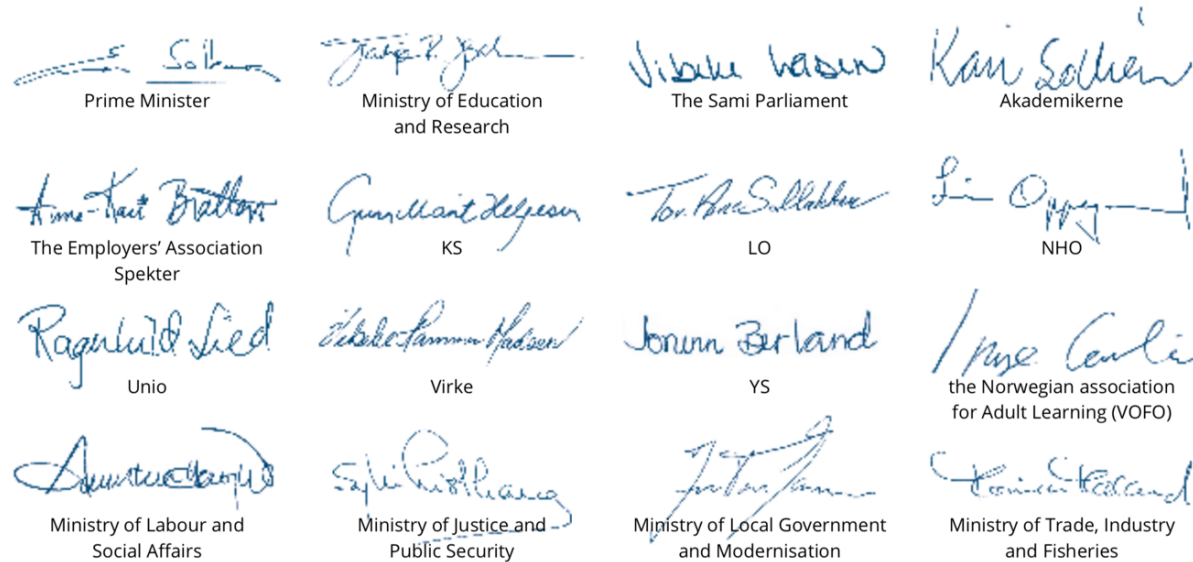 E Solberg
Prime Minister
Ministry of Education
and Research
Vibeke Larsen
The Sami Parliament
Kari Sollien
Akademikerne
Anne-Kari Bratten
The Employers’ Association
Spekter
Gunn Marit Helgesen
KS
LO
NHO
Ragnhild Lied
Unio
Vibeke Hammer Madsen
Virke
Jorunn Berland
YS
the Norwegian association
for Adult Learning (VOFO)
Ministry of Labour and
Social Affairs
Ministry of Justice and
Public Security
Ministry of Local Government
and Modernisation
Ministry of Trade, Industry
and Fisheries